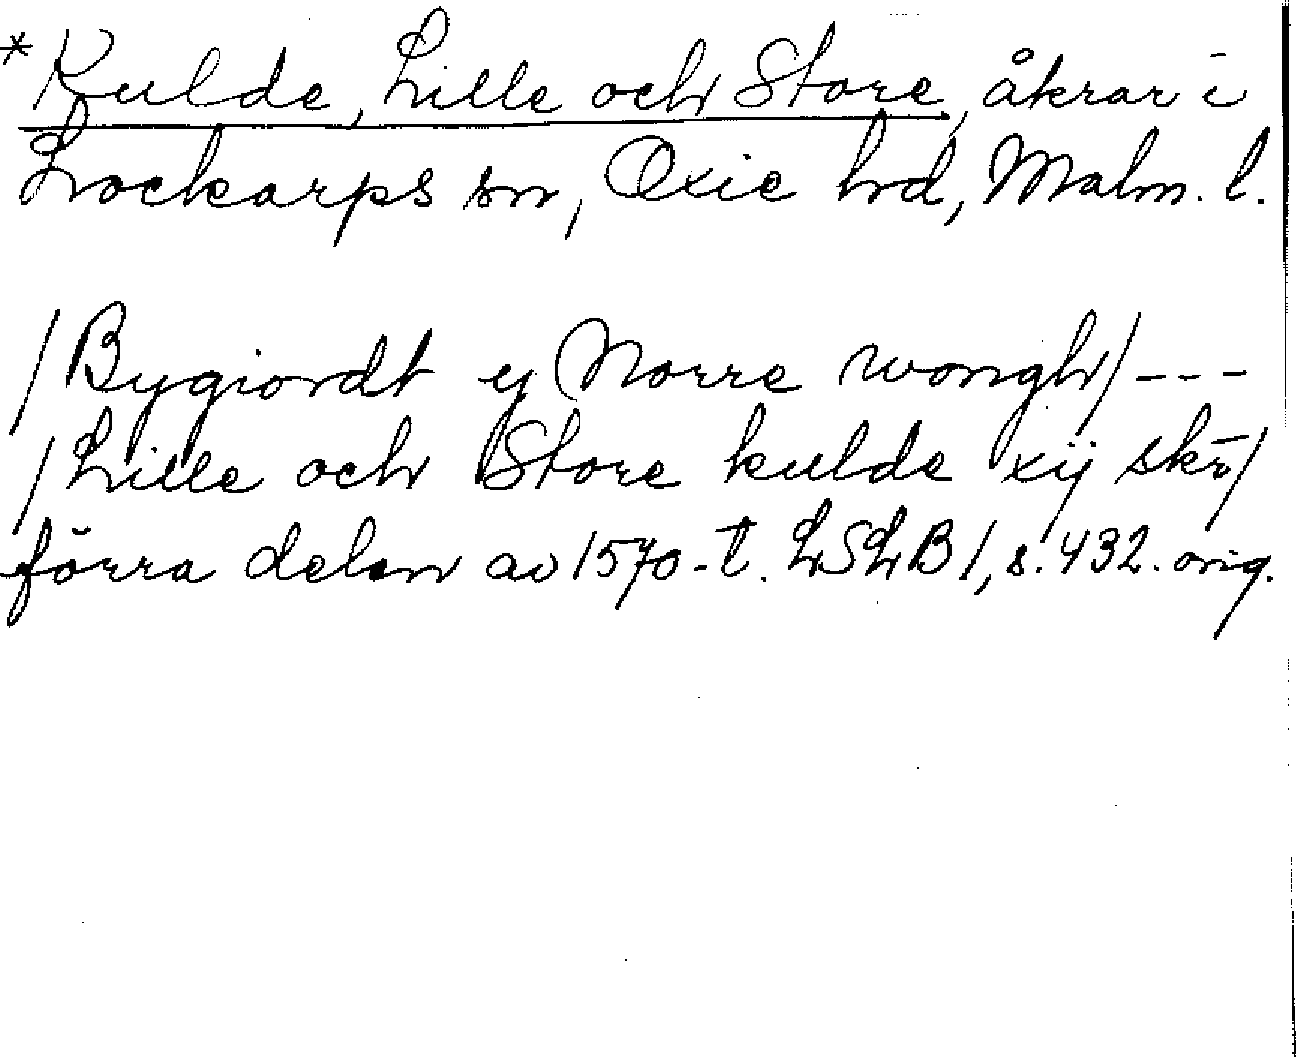 *Kulde, Lille och Store, åkrar i
Lockarps sn, Oxie hd, Malm. l.
/Bygiordt ej Norre wongh/ ---
/Lille och Store kulde xij skr̄/
förra delen av 1570-t. LSLB 1, s. 432. orig.